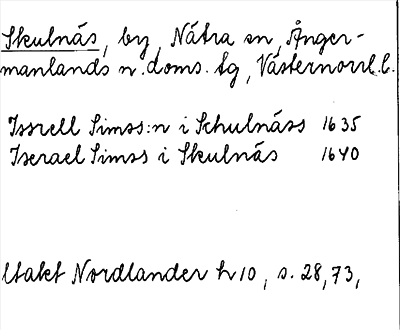 Skulnäs, by, Nätra sn, Ånger-
manlands n. doms. tg, Västernorrl. l.
Issrell Simss:n i Schulnäss 1635
Iserael Simss i Skulnäs 1640
Utakt Nordlander h 10, s. 28, 73,